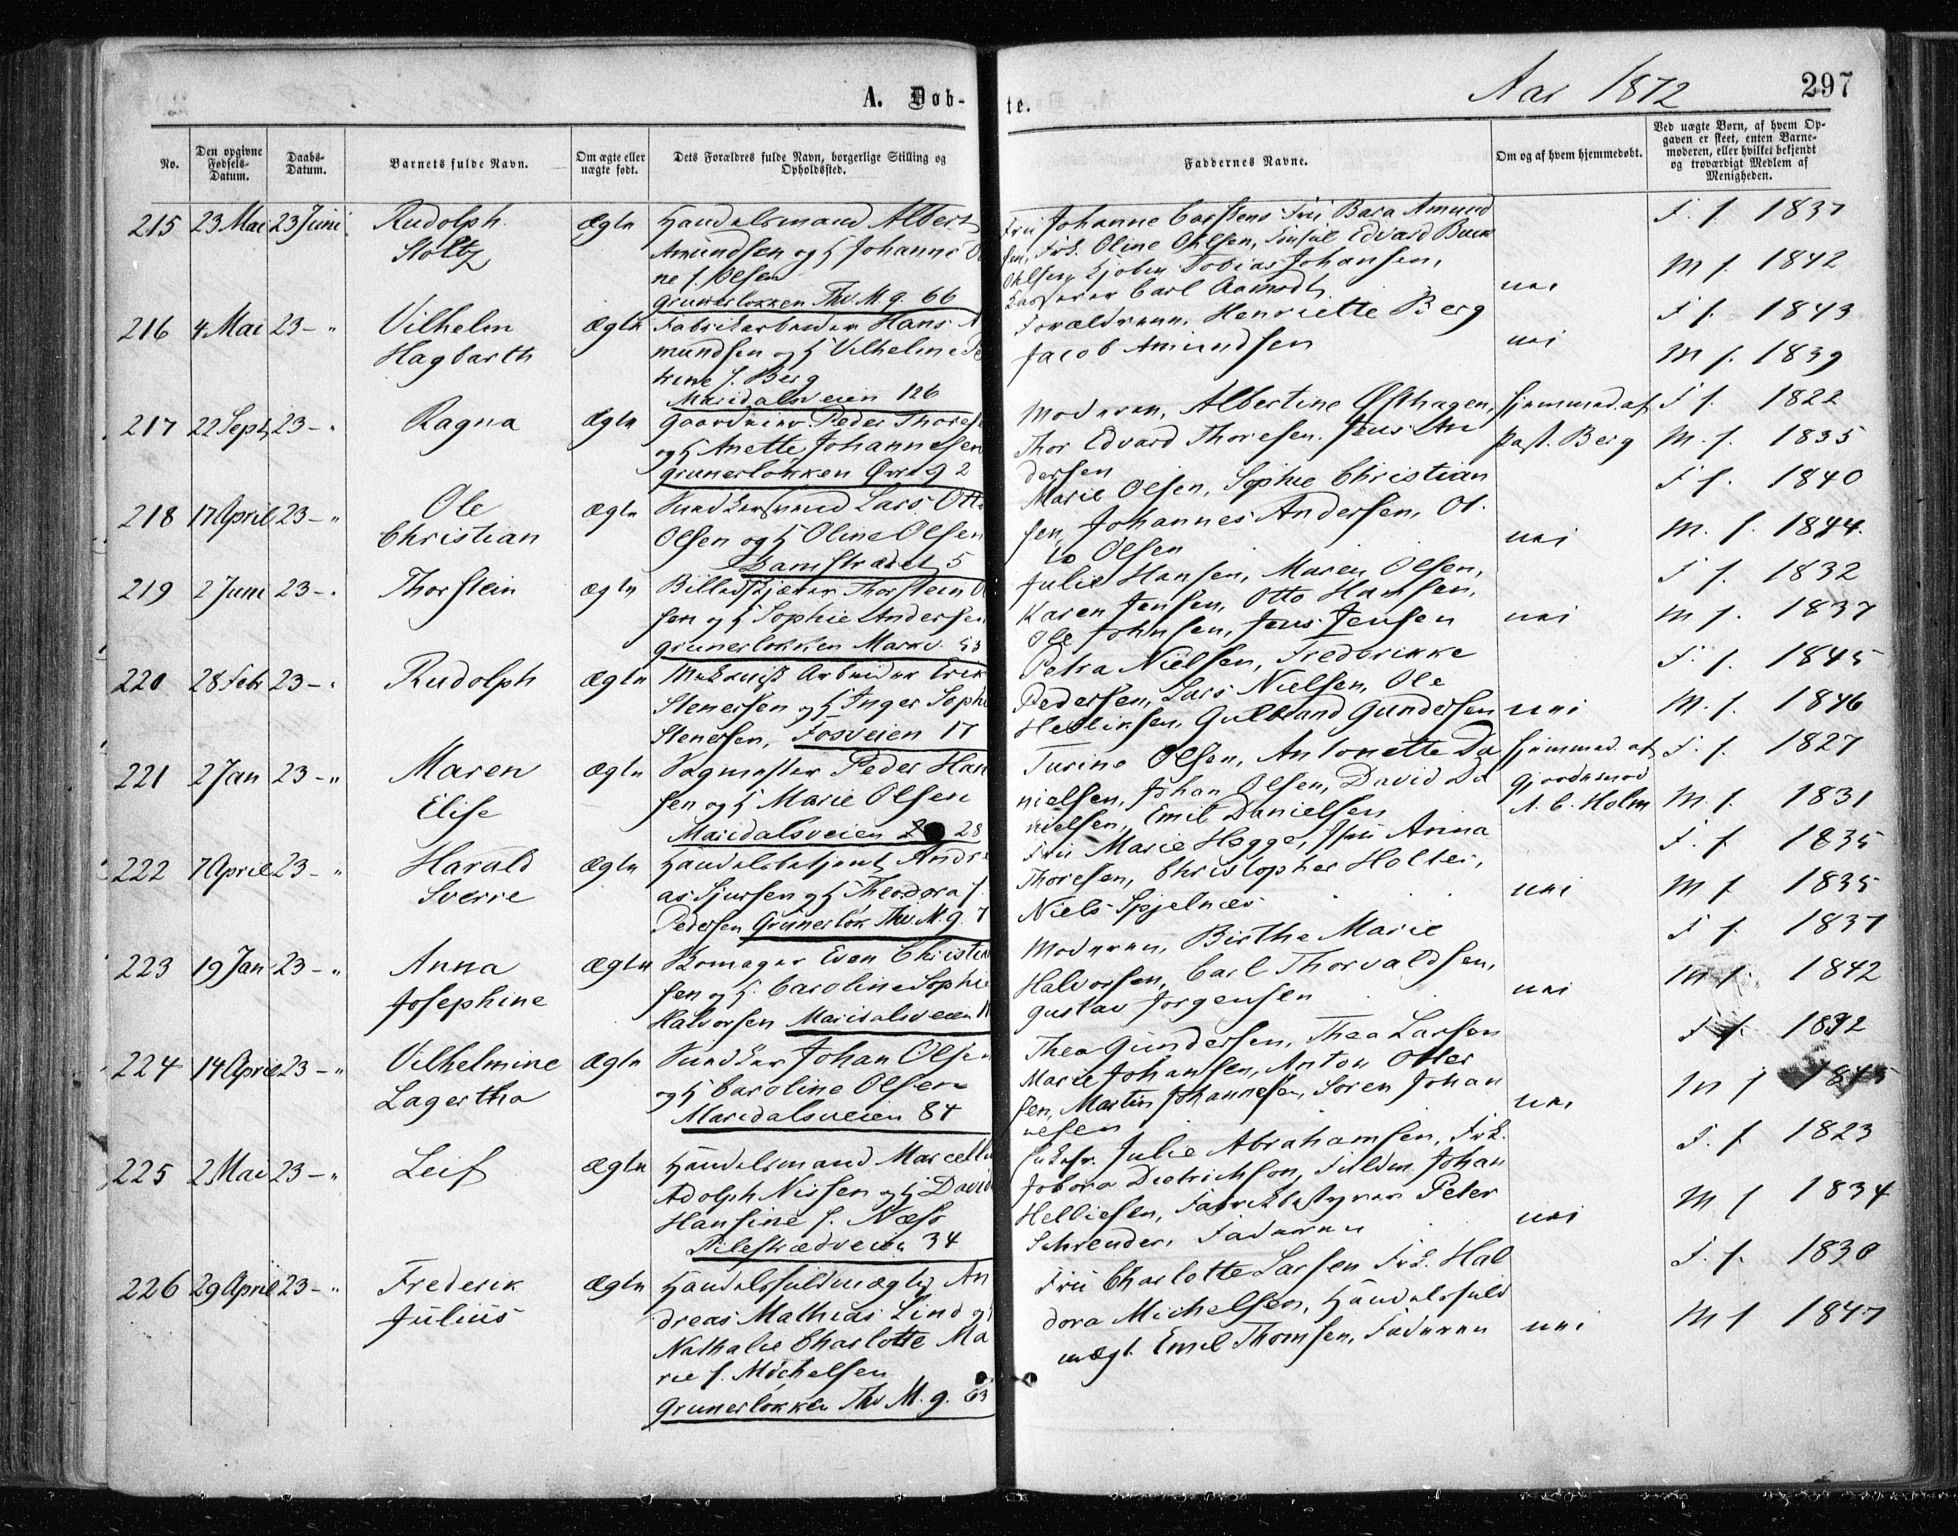 Aar 1872
297
A. Døb-
te.
No.
Den opgivne Fødsels-Datum.
Daabs-Datum.
Barnets fulde Navn.
Om ægte eller uægte født.
Dets Forældres fulde Navn, borgerlige Stilling og Opholdssted.
Faddernes Navne.
Om og af hvem hjemmedøbt.
Ved uægte Børn, af hvem Opgaven er skeet, enten Barnemoderen, eller hvilket bekjendt og troværdigt Medlem af Menigheden.
215 23 Mai 23 Juni Rudolph Ægte Handelsmand Albert
Stoltz
Amundsen og H Johanne
ne f. Olsen
Grünerløkken Thv. M g. 66
Fru Johanne Carstens Fru Bara Amund
sen, Frk. Oline Ohlsen, Edvard
Ohlsen, Tobias Johansen,
Carl Aamodt
nei
F. f. 1837
M f. 1842
216 4 Mai 23 - " Vilhelm Ægte Fabrikarbeider Hans A
Hagbarth
mundsen og H Vilhelmine Pe
trine f. Berg
Maridalsveien 126
Forældrene, Henriette Berg
Jacob Amundsen
nei
F f. 1843
M f. 1839
217 22 Sept 23 - " Ragna Ægte Gaardeier Peder Thores
og H Anette Johannesen
Grünerløkken Øvreg 2
Moderen, Albertine Østhagen,
Thor Edvard Thoresen. Jens An
dersen
hjemmed. af
Past. Berg
F f. 1822
M. f. 1835
218 17 April 23 - " Ole Ægte Lars Otto
Christian
Olsen og H Oline Olsen
Damstrædet 5
Marie Olsen, Sophie Christian
sen, Johannes Andersen, Ot
to Olsen
nei
F f. 1840
M. f. 1844.
219 2 Juni 23 - " Thorstein Ægte Billedskjærer Thorstein O
sen og H Sophie Andersen
Grünerløkken Markv. 53
Julie Hansen, Maren Olsen,
Karen Jensen, Otto Hansen,
Ole Johnsen, Jens Jensen
nei
F f. 1832
M f. 1837
220 28 Febr 23 - " Rudolph Ægte Mekanisk Arbeider Erik
Stenersen og H Inger Soph
Stenersen, Fosveien 17
Petra Nielsen, Fredrikke
Pedersen, Lars Nielsen, Ole
Hendriksen, Gulbrand Gundersen
nei
F. f. 1845
M. f. 1846
221 2 Jan 23 - " Maren Ægte Vogmester Peder Han
Elise
sen og H Marie Olsen
Maridalsveien 28
Turine Olsen, Antonette Da
nielsen, Johan Olsen, David Da
nielsen, Emil Danielsen
hjemmed. af
Gjordemod
A. C. Holm
F. f. 1827
M. f. 1831
222 7 April 23 - " Harald Ægte Handelsbetjent Andre
Sverre
as Sjursen og H Theodora f.
Pedersen Grünerløk Thv. M. g. 7
Fru Marie Hegge, Fru Anna
Thoresen, Christopher Holter,
Niels Spjelnæs
nei
F. f 1835
M f 1835
223 19 Jan 23 - " Anna Ægte Even Christian
Josephine
sen og H. Caroline Sophie
Halvorsen Maridalsveien
Moderen, Birthe Marie
Halvorsen, Carl Thorvaldsen,
Gustav Jørgensen
nei
F f. 1837
M f. 1842
224 14 April 23 - " Vilhelmine Ægte Johan Olsen
Lagertha
og H Caroline Olsen
Maridalsveien 84
Thea Gundersen, Thea Larsen
Marie Johansen, Anton Otter
sen, Martin Johannesen, Søren Johan
nesen
nei
F f. 1832
M f 1845
225 2 Mai 23 - " Leif Ægte Handelsmand Marcelli
Adolph Nissen og H David
Hansine f. Næss
Pilestrædveien 34
Julie Abrahamsen, Frk.
Johora Dietrichson, Johan
Helliesen, Fabrikbestyrer Peter
Schrender, Faderen
nei
F. f 1823
M f 1834
226 29 April 23 - " Frederik Ægte Handelsfuldmægtig An
Julius
dreas Mathias Lind og
Nathalie Charlotte Ma
rie f. Michelsen
Grünerløkken Thv M. g. 63
Fru Charlotte Larsen Frk. Hal
dora Michelsen, Handelsfuld
mægt. Emil Thomsen, Faderen
nei
F. f. 1830
M f 1847